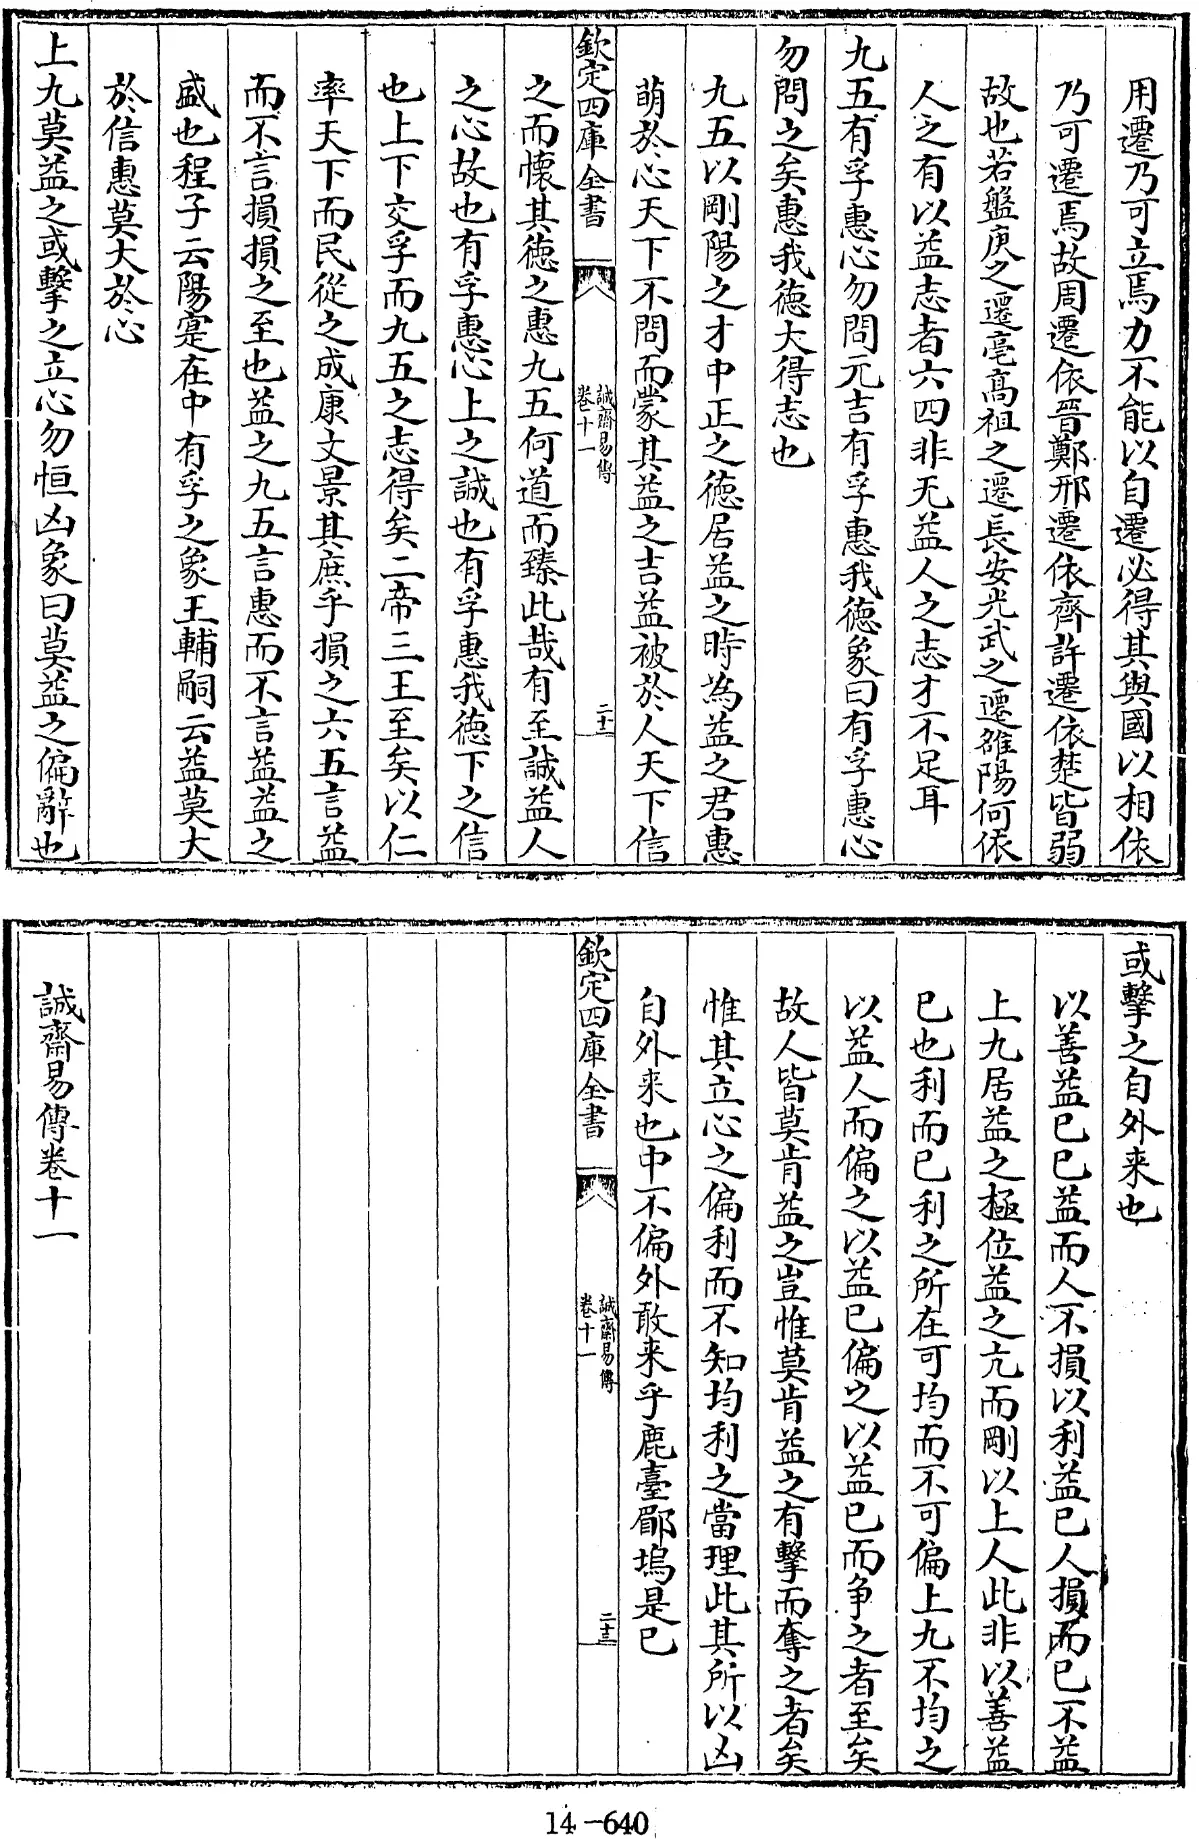 用遷乃可立焉力不能以自遷必得其與國以相依
乃可遷焉故周遷依晉鄭邢遷依齊許遷依楚皆弱
故也若盤庚之遷亳高祖之遷長安光武之遷雒陽何依
人之有以益志者六四非无益人之志才不足耳
九五有孚惠心勿問元吉有孚惠我德象曰有孚惠心
勿問之矣惠我德大得志也
九五以剛陽之才中正之德居益之時為益之君惠
萌於心天下不問而蒙其益之吉益被於人天下信
欽定四庫全書
誠齋易傳
卷十一
二十二
之而懷其德之惠九五何道而臻此哉有至誠益人
之心故也有孚惠心上之誠也有孚惠我德下之信
也上下交孚而九五之志得矣二帝三王至矣以仁
率天下而民從之成康文景其庶乎損之六五言益
而不言損損之至也益之九五言惠而不言益益之
盛也程子云陽寔在中有孚之象王輔嗣云益莫大
於信惠莫大於心
上九莫益之或擊之立心勿恒凶象曰莫益之偏辭也
或擊之自外来也
以善益已已益而人不損以利益已人損而已不益
上九居益之極位益之亢而剛以上人此非以善益
已也利而已利之所在可均而不可偏上九不均之
以益人而偏之以益已偏之以益已而争之者至矣
故人皆莫肯益之豈惟莫肯益之有擊而奪之者矣
惟其立心之偏利而不知均利之當理此其所以凶
自外来也中不偏外敢来乎鹿臺郿塢是已
欽定四庫全書
誠齋易傳
卷十一
二十三
誠齋易傳卷十一
14-640